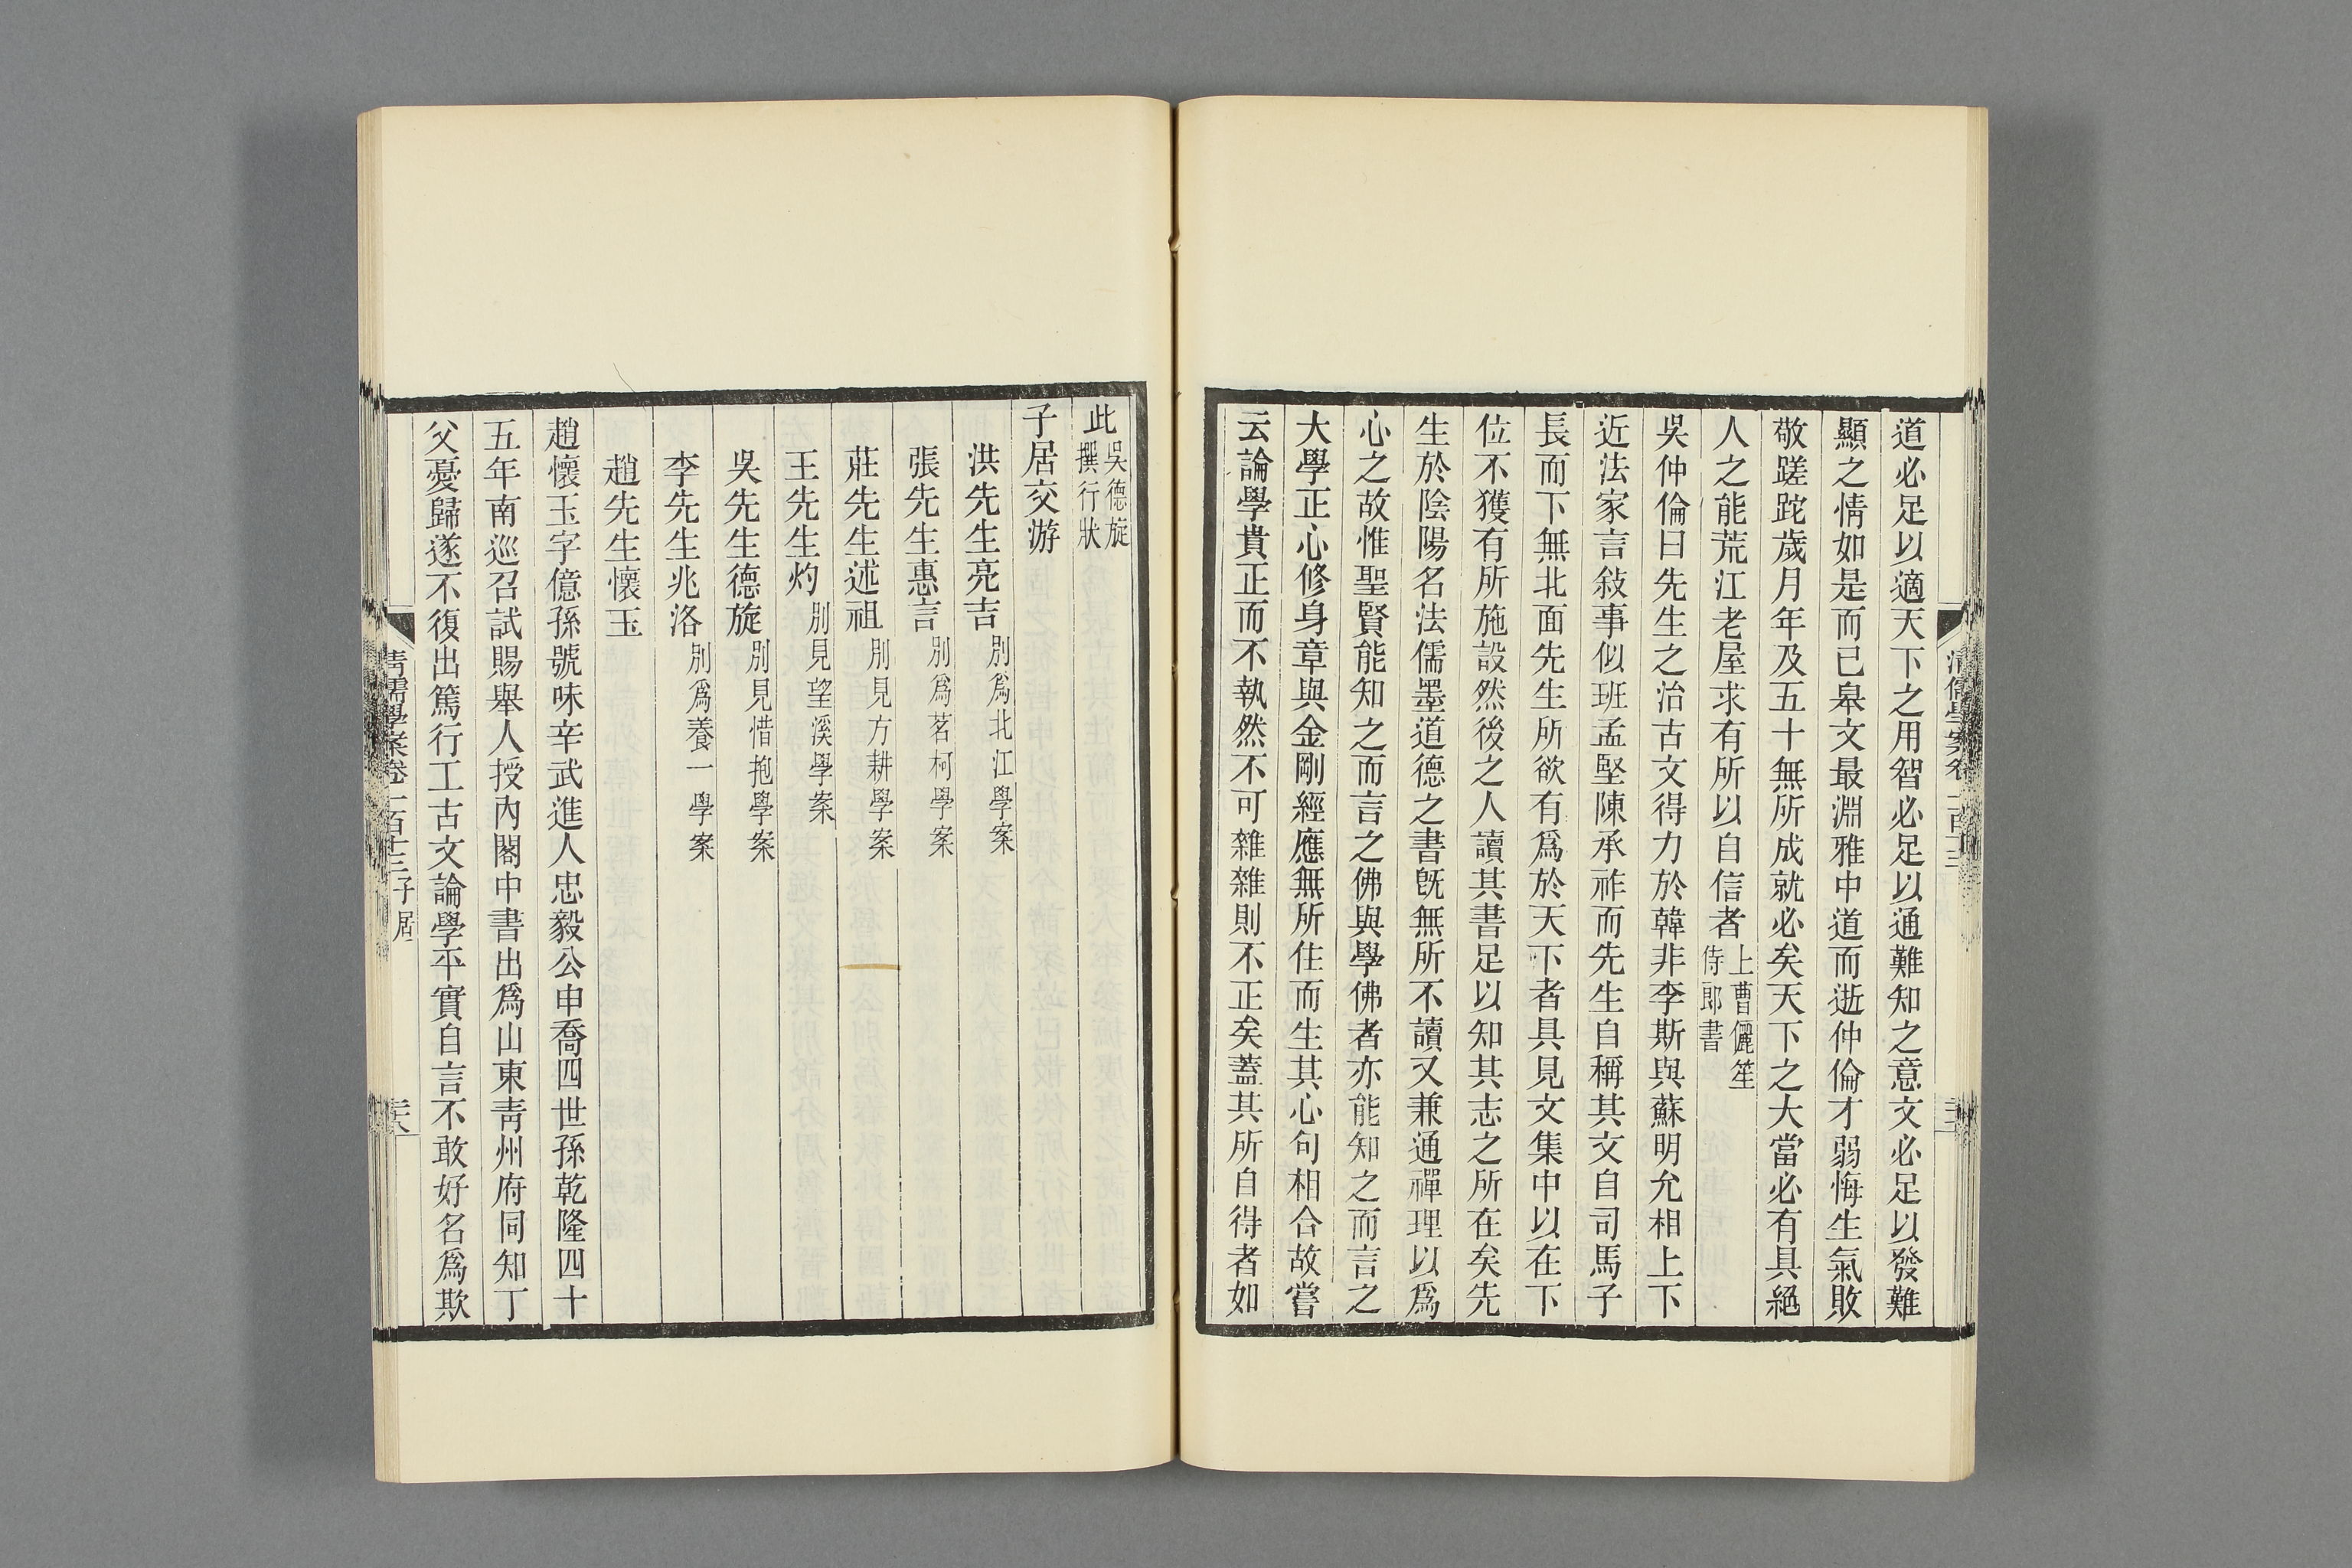 道必足以適天下之用智必足以通難知之意文必足以發難
顯之情如是而已皋文最淵雅中道而逝仲倫才弱悔生氣敗
敬蹉跎歲月年及五十無所成就必矣天下之大當必有具絕
人之能荒江老屋求有所以自信者上曹儷笙侍郎書
吳仲倫曰先生之治古文得力於韓非李斯與蘇明允相上下
近法家言敍事似班孟堅陳承祚而先生自稱其文自司馬子
長而下無北面先生所欲有爲於天下者具見文集中以在下
位不獲有所施設然後之人讀其書足以知其志之所在矣先
生於陰陽名法儒墨道德之書旣無所不讀又兼通禪理以爲
心之故惟聖賢能知之而言之佛與學佛者亦能知之而言之
大學正心修身章與金剛經應無所住而生其心句相合故嘗
云論學貴正而不執然不可雜雜則不正矣蓋其所自得者如
此吳德旋撰行狀
子居交游
洪先生亮吉別爲北江學案
張先生惠言別爲茗柯學案
莊先生述祖別見方耕學案
王先生灼別見望溪學案
吳先生德旋別見惜抱學案
李先生兆洛別爲養一學案
趙先生懷玉
趙懷玉字億孫號味辛武進人忠毅公申喬四世孫乾隆四十
五年南巡召試賜舉人授內閣中書出爲山東靑州府同知丁
父憂歸遂不復出篤行工古文論學平實自言不敢好名爲欺
清儒學案卷一百十三 子居